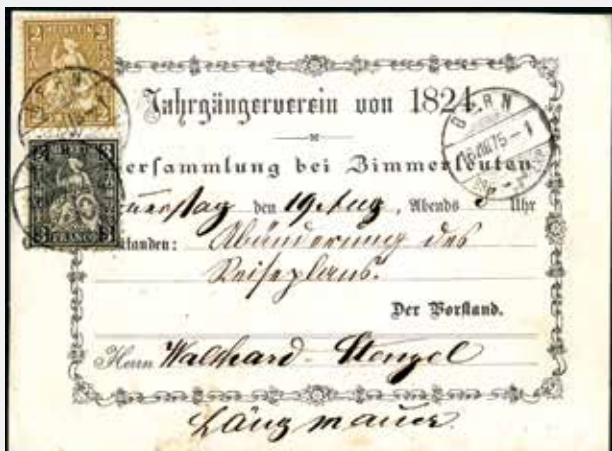 2 HELVETIA 2
BERN
Jahrgängerverein von 1824.
BERN
18.VIII.75-1
Versammlung bei Zimmerleuten
Donnerstag den 19 Aug, Abends 8 Uhr
3 3
FRANCO
tanden: Abänderung des
Reiseplans.
Der Vorstand.
Herrn Walthard-Stengel
Längmauer.